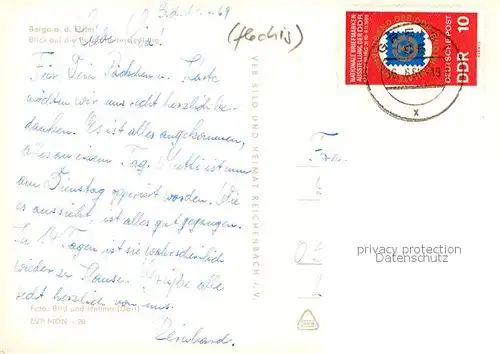 Berga a. d. Elster
Blick auf die
69
Für Dein Päckchen u. Karte
möchten wir uns recht herzlich be-
danken. Es ist alles angekommen,
alles an einem Tag. Mutti ist nun
am Dienstag operiert worden. Wie
es aussieht, ist alles gut gegangen.
In 14 Tagen ist sie wahrscheinlich
wieder zu Hause. Grüße alle
recht herzlich von uns.
Reinhard.
Foto: Bild und Heimat (Dart)
VEB BILD UND HEIMAT REICHENBACH i. V.
NATIONALE BRIEFMARKEN-
AUSSTELLUNG DER DDR
DEUTSCHE POST
DDR 10
x
privacy protection
Datenschutz